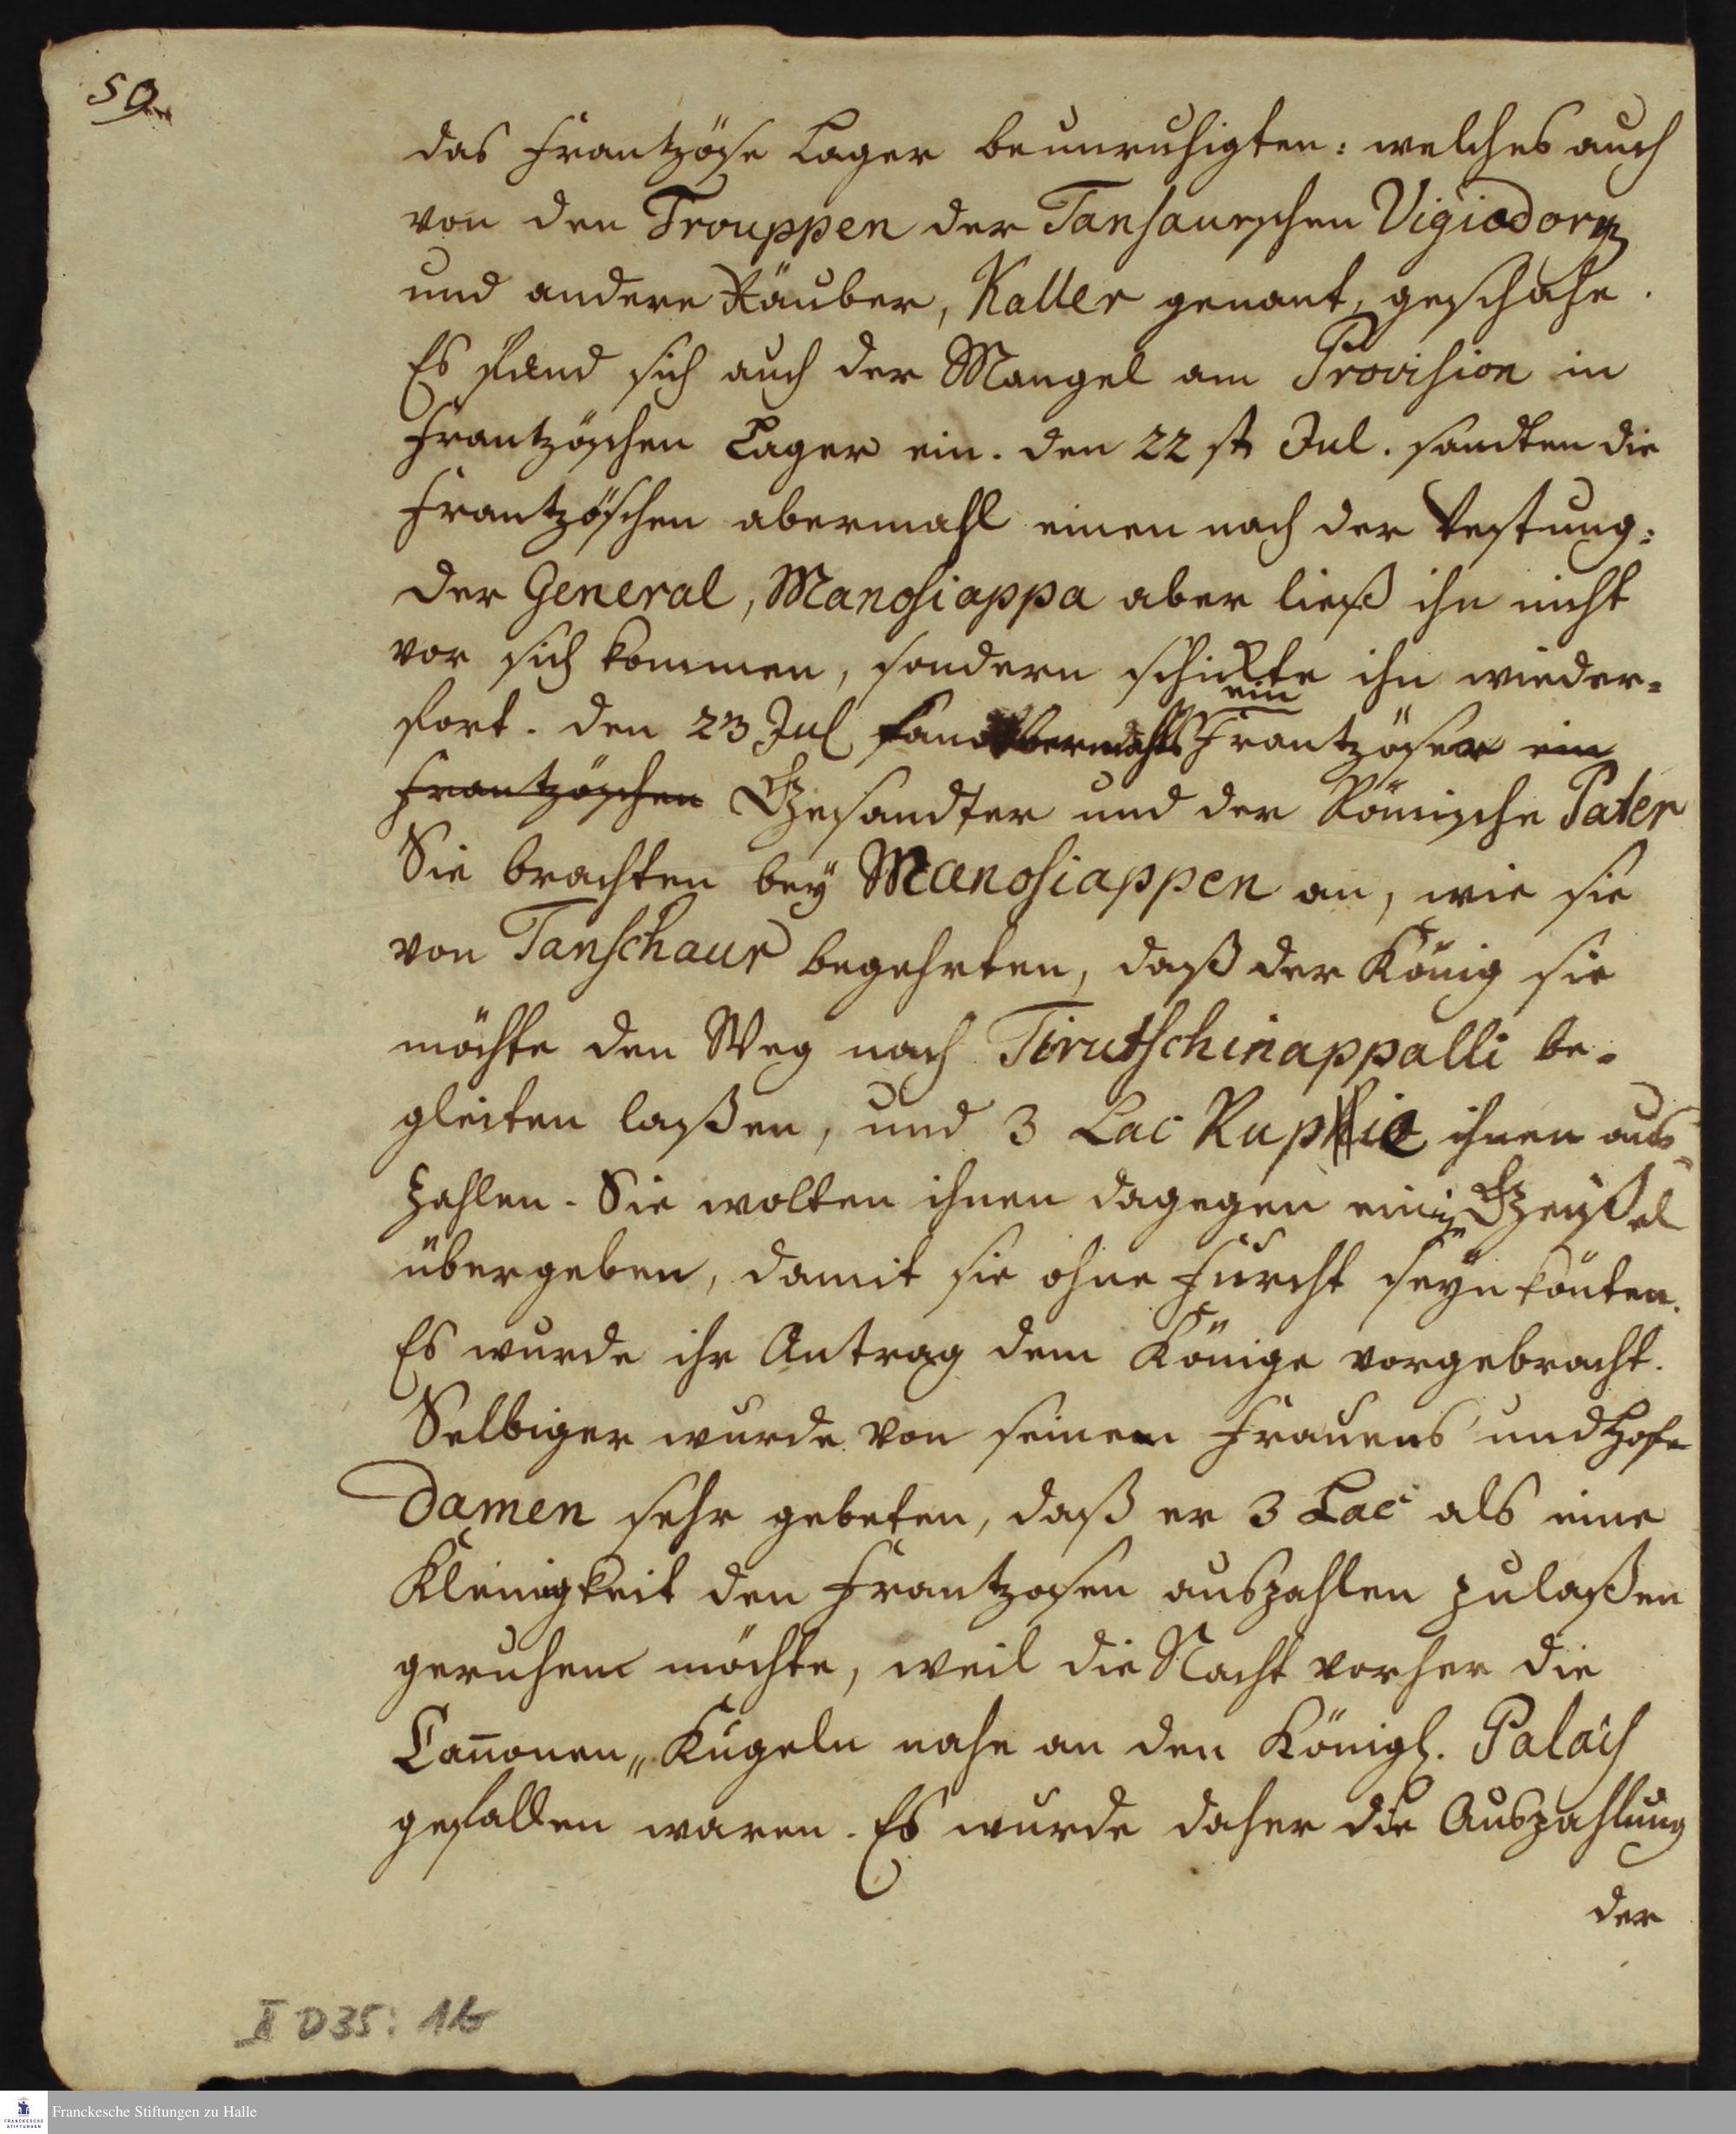 50
das Frantzöse Lager beunruhigten: welches auch
von den Trouppen der Tansaurschen Vigiadorn
und andere Räuber, Kaller genant, geschahe.
Es fand sich auch der Mangel am Provision in
Frantzöschen Lager ein. den 22st Jul. sandten die
Frantzöschen abermahl einen nach der Vestung:
der General, Manosiappa aber ließ ihn nicht
vor sich kommen, sondern schickte ihn wieder-
fort. den 23 Jul fand abermahls ein Frantzöser ein
Frantzöschen Gesandter und der Römische Pater
Sie brachten bey Manosiappen an, wie sie
von Tanschaur begehrten, daß der König sie
möchte den Weg nach Tirutschinappalli be-
gleiten laßen, und 3 Lac Rupie ihnen aus-
zahlen. Sie wolten ihnen dagegen einig Geißel
übergeben, damit sie ohne Furcht seyn könten.
Es wurde ihr Antrag dem Könige vorgebracht.
Selbiger wurde von seinen Frauens und Hofe
Damen sehr gebeten, daß er 3 Lac als eine
Kleinigkeit den Frantzosen auszahlen zulaßen
geruhen möchte, weil die Nacht vorher die
Cañonen„ Kugeln nahe an den Königl. Palais
gefallen waren. Es wurde daher die Auszahlung
der
II D35: 16
Franckesche Stiftungen zu Halle